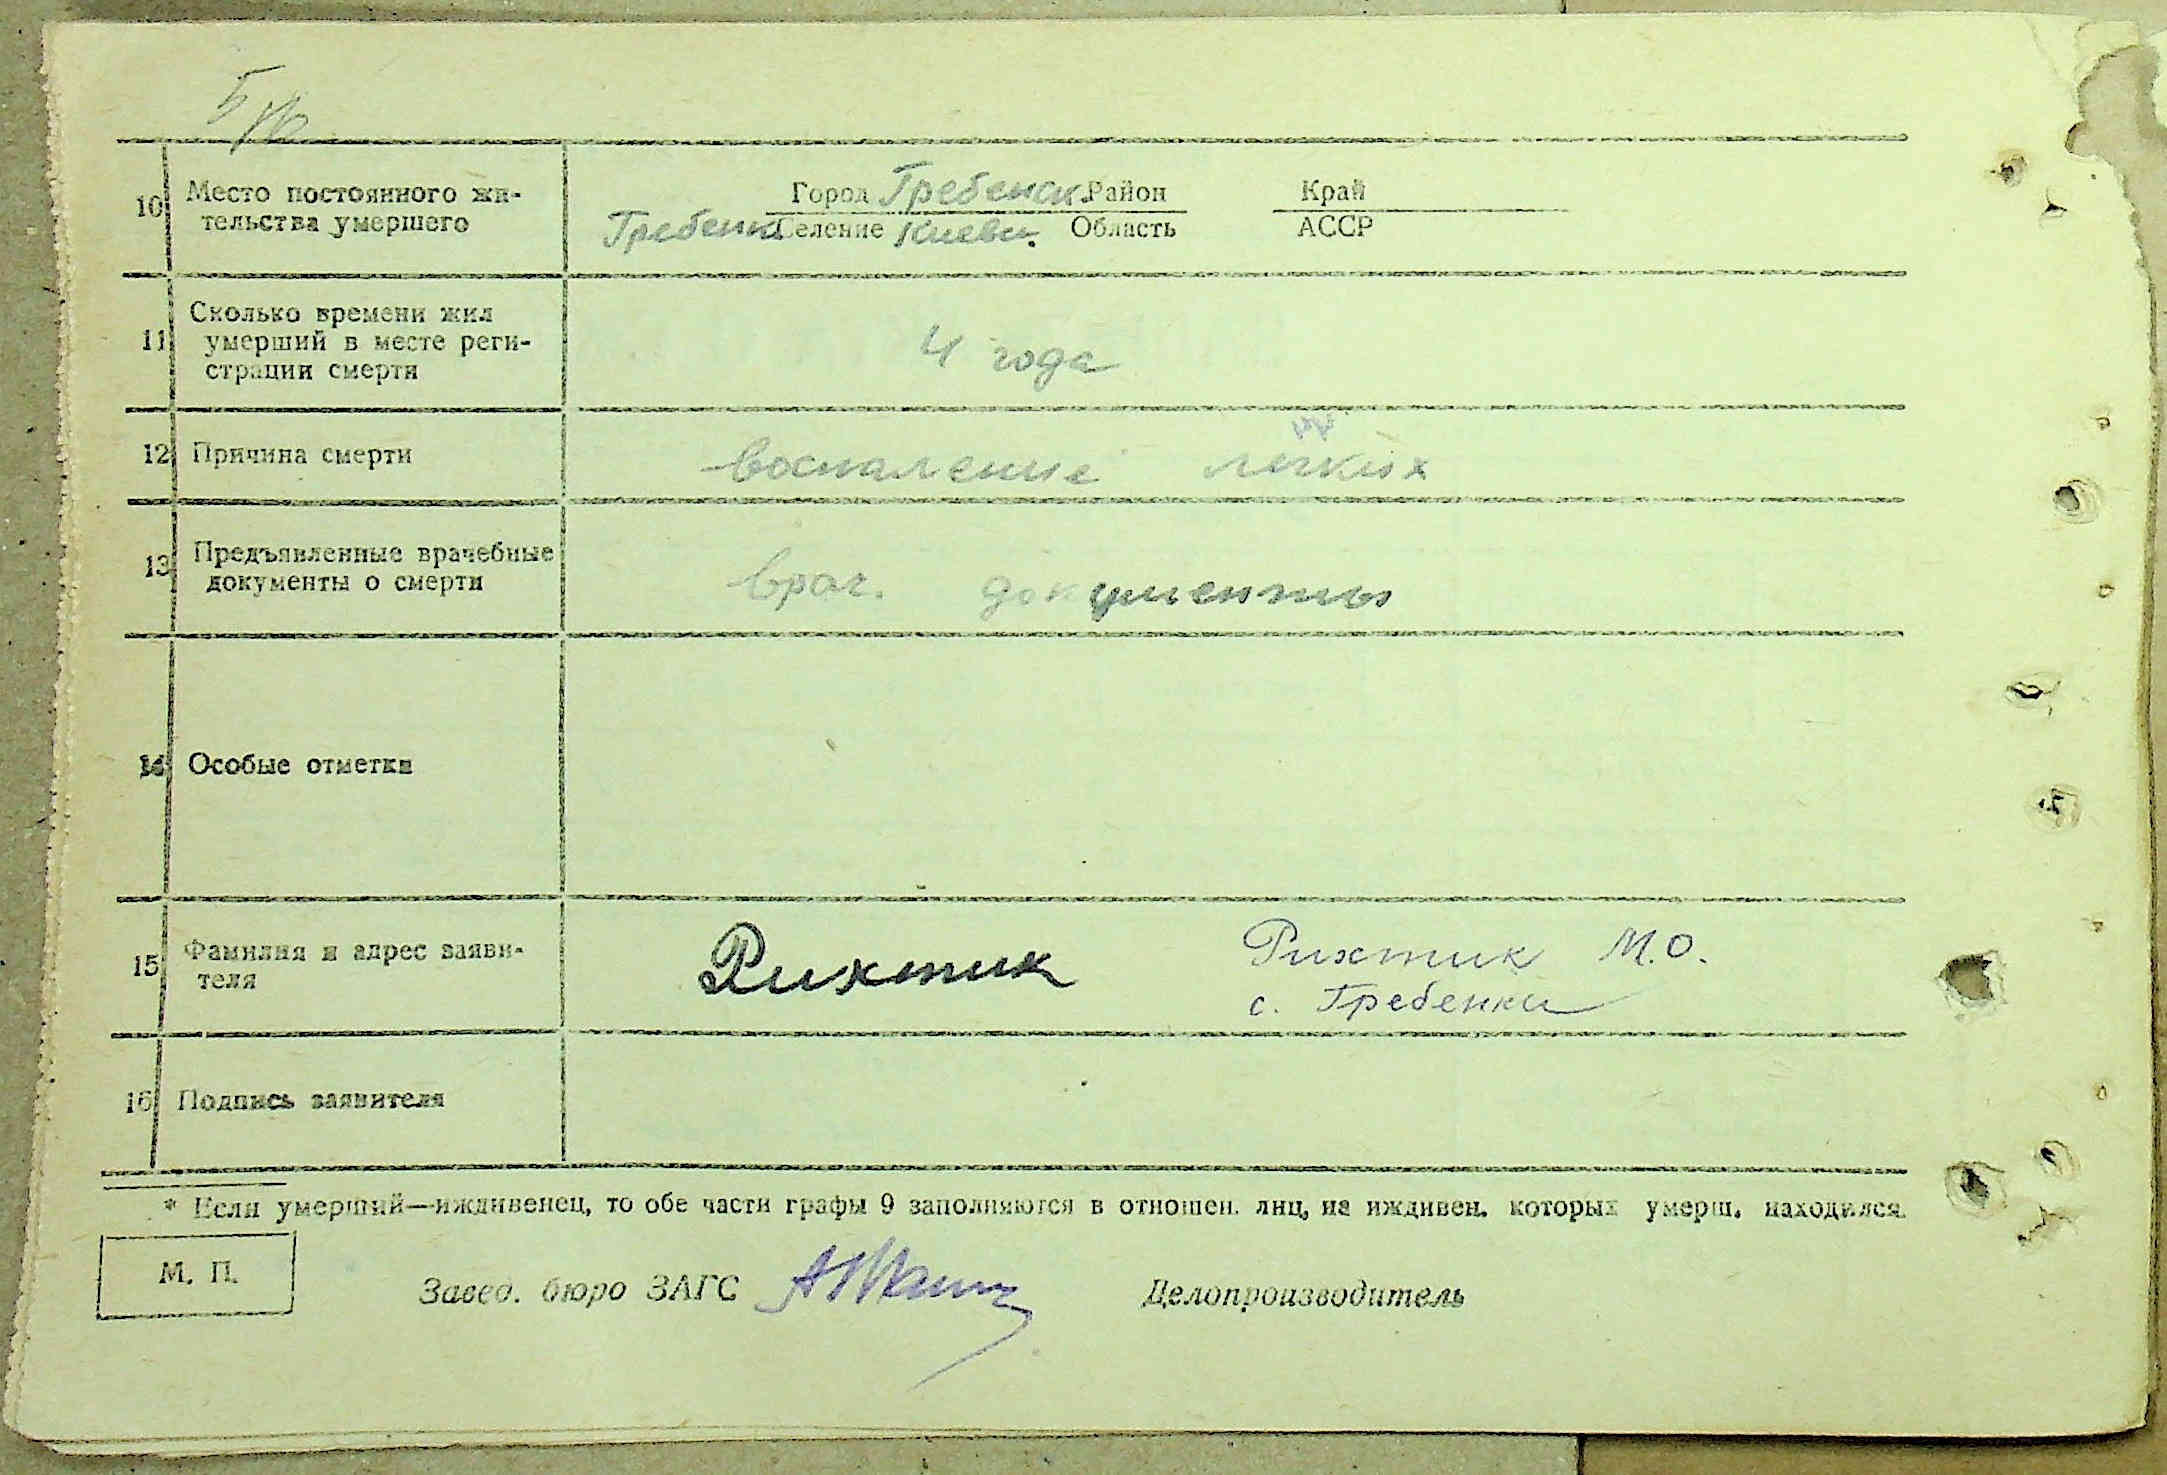 5
10 Место постоянного жи- Город Гребенск. Район Край
тельства умершего Гребенки Селение Киевск. Область АССР
11 Сколько времени жил
умерший в месте реги- 4 года
страции смерти
12 Причина смерти воспаление легких
13 Предъявленные врачебные
документы о смерти врач. документы
14 Особые отметки
15 Фамилия и адрес заяви- Рихтик Рихтик М.О.
теля с. Гребенки
16 Подпись заявителя
* Если умерший—иждивенец, то обе части графы 9 заполняются в отношен. лиц, на иждивен. которых умерш. находился.
М. П. Завед. бюро ЗАГС Делопроизводитель